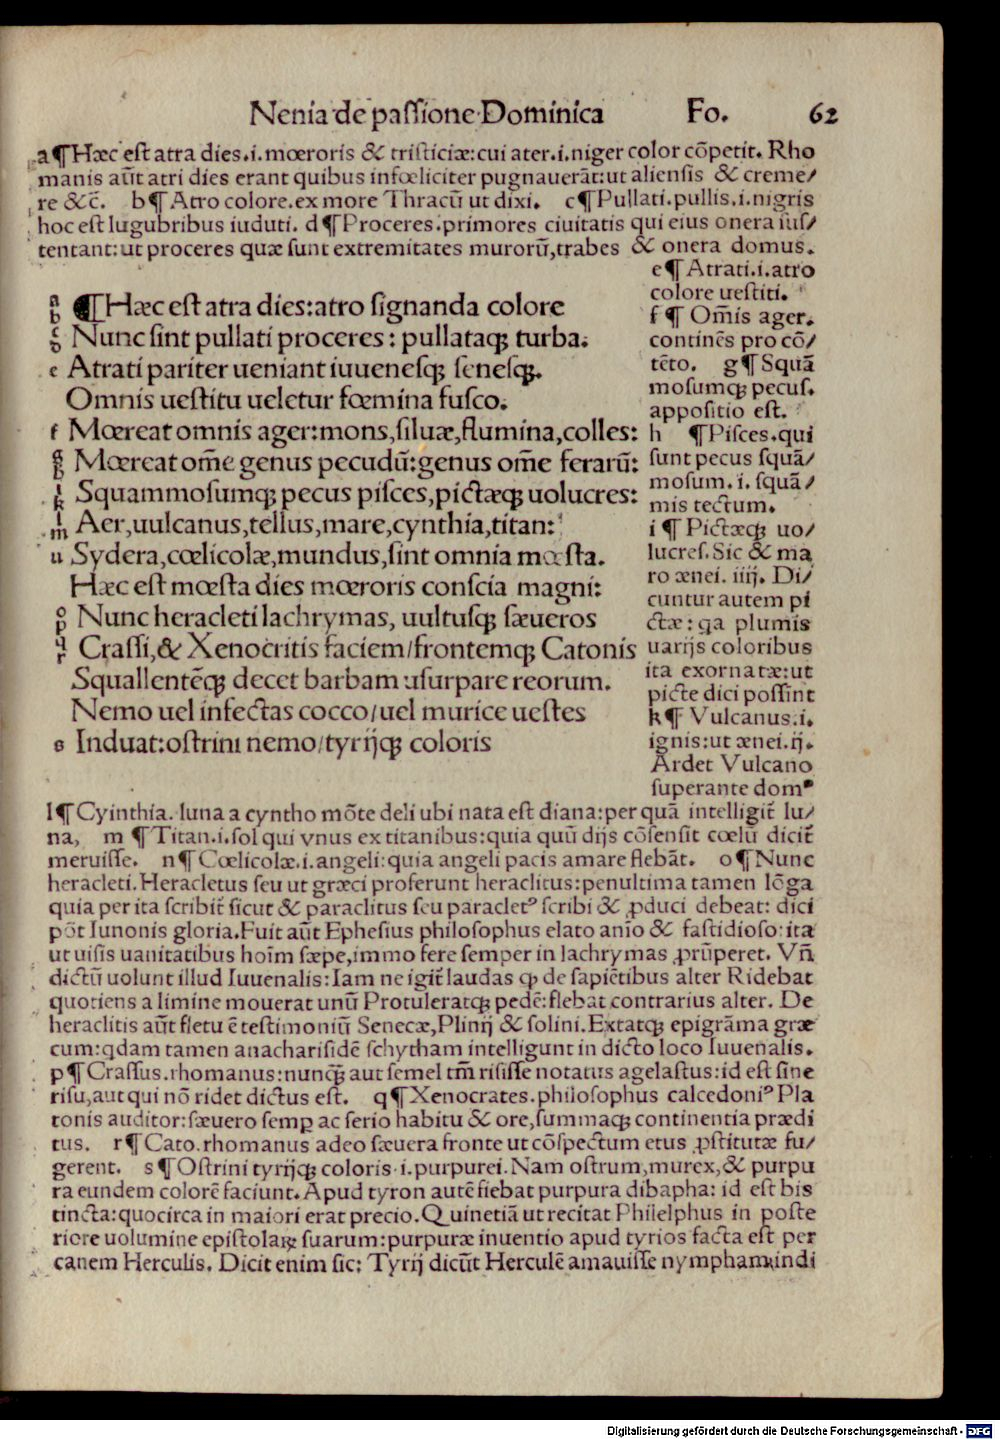 Nenia de paſſione Dominica Fo. 62
a¶Hæc eſt atra dies.i.mœroris & triſticiæ:cui ater.i.niger color cõpetit. Rho
manis aũt atri dies erant quibus infœliciter pugnauerãt:ut alienſis & creme/
re &c̃. b¶Atro colore.ex more Thracũ ut dixi. c¶Pullati.pullis.i.nigris
hoc eſt lugubribus iuduti. d¶Proceres.primores ciuitatis qui eius onera iuſ/
tentant:ut proceres quæ ſunt extremitates murorũ,trabes & onera domus.
a
b ¶Hæc eſt atra dies:atro ſignanda colore
c
d Nunc ſint pullati proceres : pullataqꝫ turba.
e Atrati pariter ueniant iuueneſqꝫ ſeneſqꝫ.
Omnis ueſtitu ueletur fœmina fuſco.
f Mœreat omnis ager:mons,ſiluæ,flumina,colles:
g
h Mœreat om̃e genus pecudũ:genus om̃e ferarũ:
i
k Squammoſumqꝫ pecus piſces,pictæqꝫ uolucres:
l
m Aer,uulcanus,tellus,mare,cynthia,titan:
u Sydera,cœlicolæ,mundus,ſint omnia mœſta.
Hæc eſt mœſta dies mœroris conſcia magni:
o
p Nunc heracleti lachrymas, uultuſqꝫ ſæueros
q
r Craſſi,& Xenocritis faciem/frontemqꝫ Catonis
Squallentẽqꝫ decet barbam uſurpare reorum.
Nemo uel infectas cocco/uel murice ueſtes
s Induat:oſtrini nemo/tyrijqꝫ coloris
e¶Atrati.i.atro
colore ueſtiti.
f¶ Om̃is ager.
continẽs pro cõ/
tẽto. g¶Squã
moſumqꝫ pecuſ.
appoſitio eſt.
h ¶Piſces.qui
ſunt pecus ſquã/
moſum.i.ſquã/
mis tectum.
i¶ Pictæqꝫ uo/
lucreſ.Sic & ma
ro ænei. iiij. Di/
cuntur autem pi
ctæ: qa plumis
uarijs coloribus
ita exornatæ:ut
picte dici poſſint
k¶ Vulcanus.i.
ignis:ut ænei.ij.
Ardet Vulcano
ſuperante domꝰ
l¶Cyinthia.luna a cyntho mõte deli ubi nata eſt diana:per quã intelligit̃ lu/
na, m ¶Titan.i.ſol qui vnus ex titanibus:quia quũ dijs cõſenſit cœlũ dicit̃
meruiſſe. n¶Cœlicolæ.i.angeli:quia angeli pacis amare flebãt. o¶Nunc
heracleti.Heracletus ſeu ut græci proferunt heraclitus:penultima tamen lõga
quia per ita ſcribit̃ ſicut & paraclitus ſeu paracletꝰ ſcribi & ꝓduci debeat: dici
põt Iunonis gloria.Fuit aũt Epheſius philoſophus elato anĩo & faſtidioſo:ita
ut uiſis uanitatibus hoĩm ſæpe,immo fere ſemper in lachrymas ꝓrũperet. Vñ
dictũ uolunt illud Iuuenalis:Iam ne igit̃ laudas ꝙ de ſapiẽtibus alter Ridebat
quotiens a limine mouerat unũ Protuleratqꝫ pedẽ:flebat contrarius alter. De
heraclitis aũt fletu ẽ teſtimoniũ Senecæ,Plinij & ſolini.Extatqꝫ epigrãma græ
cum:qdam tamen anacharſidẽ ſchytham intelligunt in dicto loco Iuuenalis.
p¶Craſſus.rhomanus:nunqꝫ̃ aut ſemel tm̃ riſiſſe notatus agelaſtus:id eſt ſine
riſu,aut qui nõ ridet dictus eſt. q¶Xenocrates.philoſophus calcedoniꝰ Pla
tonis auditor:ſæuero ſemꝑ ac ſerio habitu & ore,ſummaqꝫ continentia prædi
tus. r¶Cato.rhomanus adeo ſæuera fronte ut cõſpectum etus ꝓſtitutæ fu/
gerent. s¶Oſtrini tyrijqꝫ coloris.i.purpurei.Nam oſtrum,murex,& purpu
ra eundem colorẽ faciunt.Apud tyron autẽ fiebat purpura dibapha: id eſt bis
tincta:quocirca in maiori erat precio.Quinetiã ut recitat Philelphus in poſte
riore uolumine epiſtolaꝝ ſuarum:purpuræ inuentio apud tyrios facta eſt per
canem Herculis. Dicit enim ſic: Tyrij dicũt Herculẽ amauiſſe nympham indi
Digitalisierung gefördert durch die Deutsche Forschungsgemeinschaft - DFG